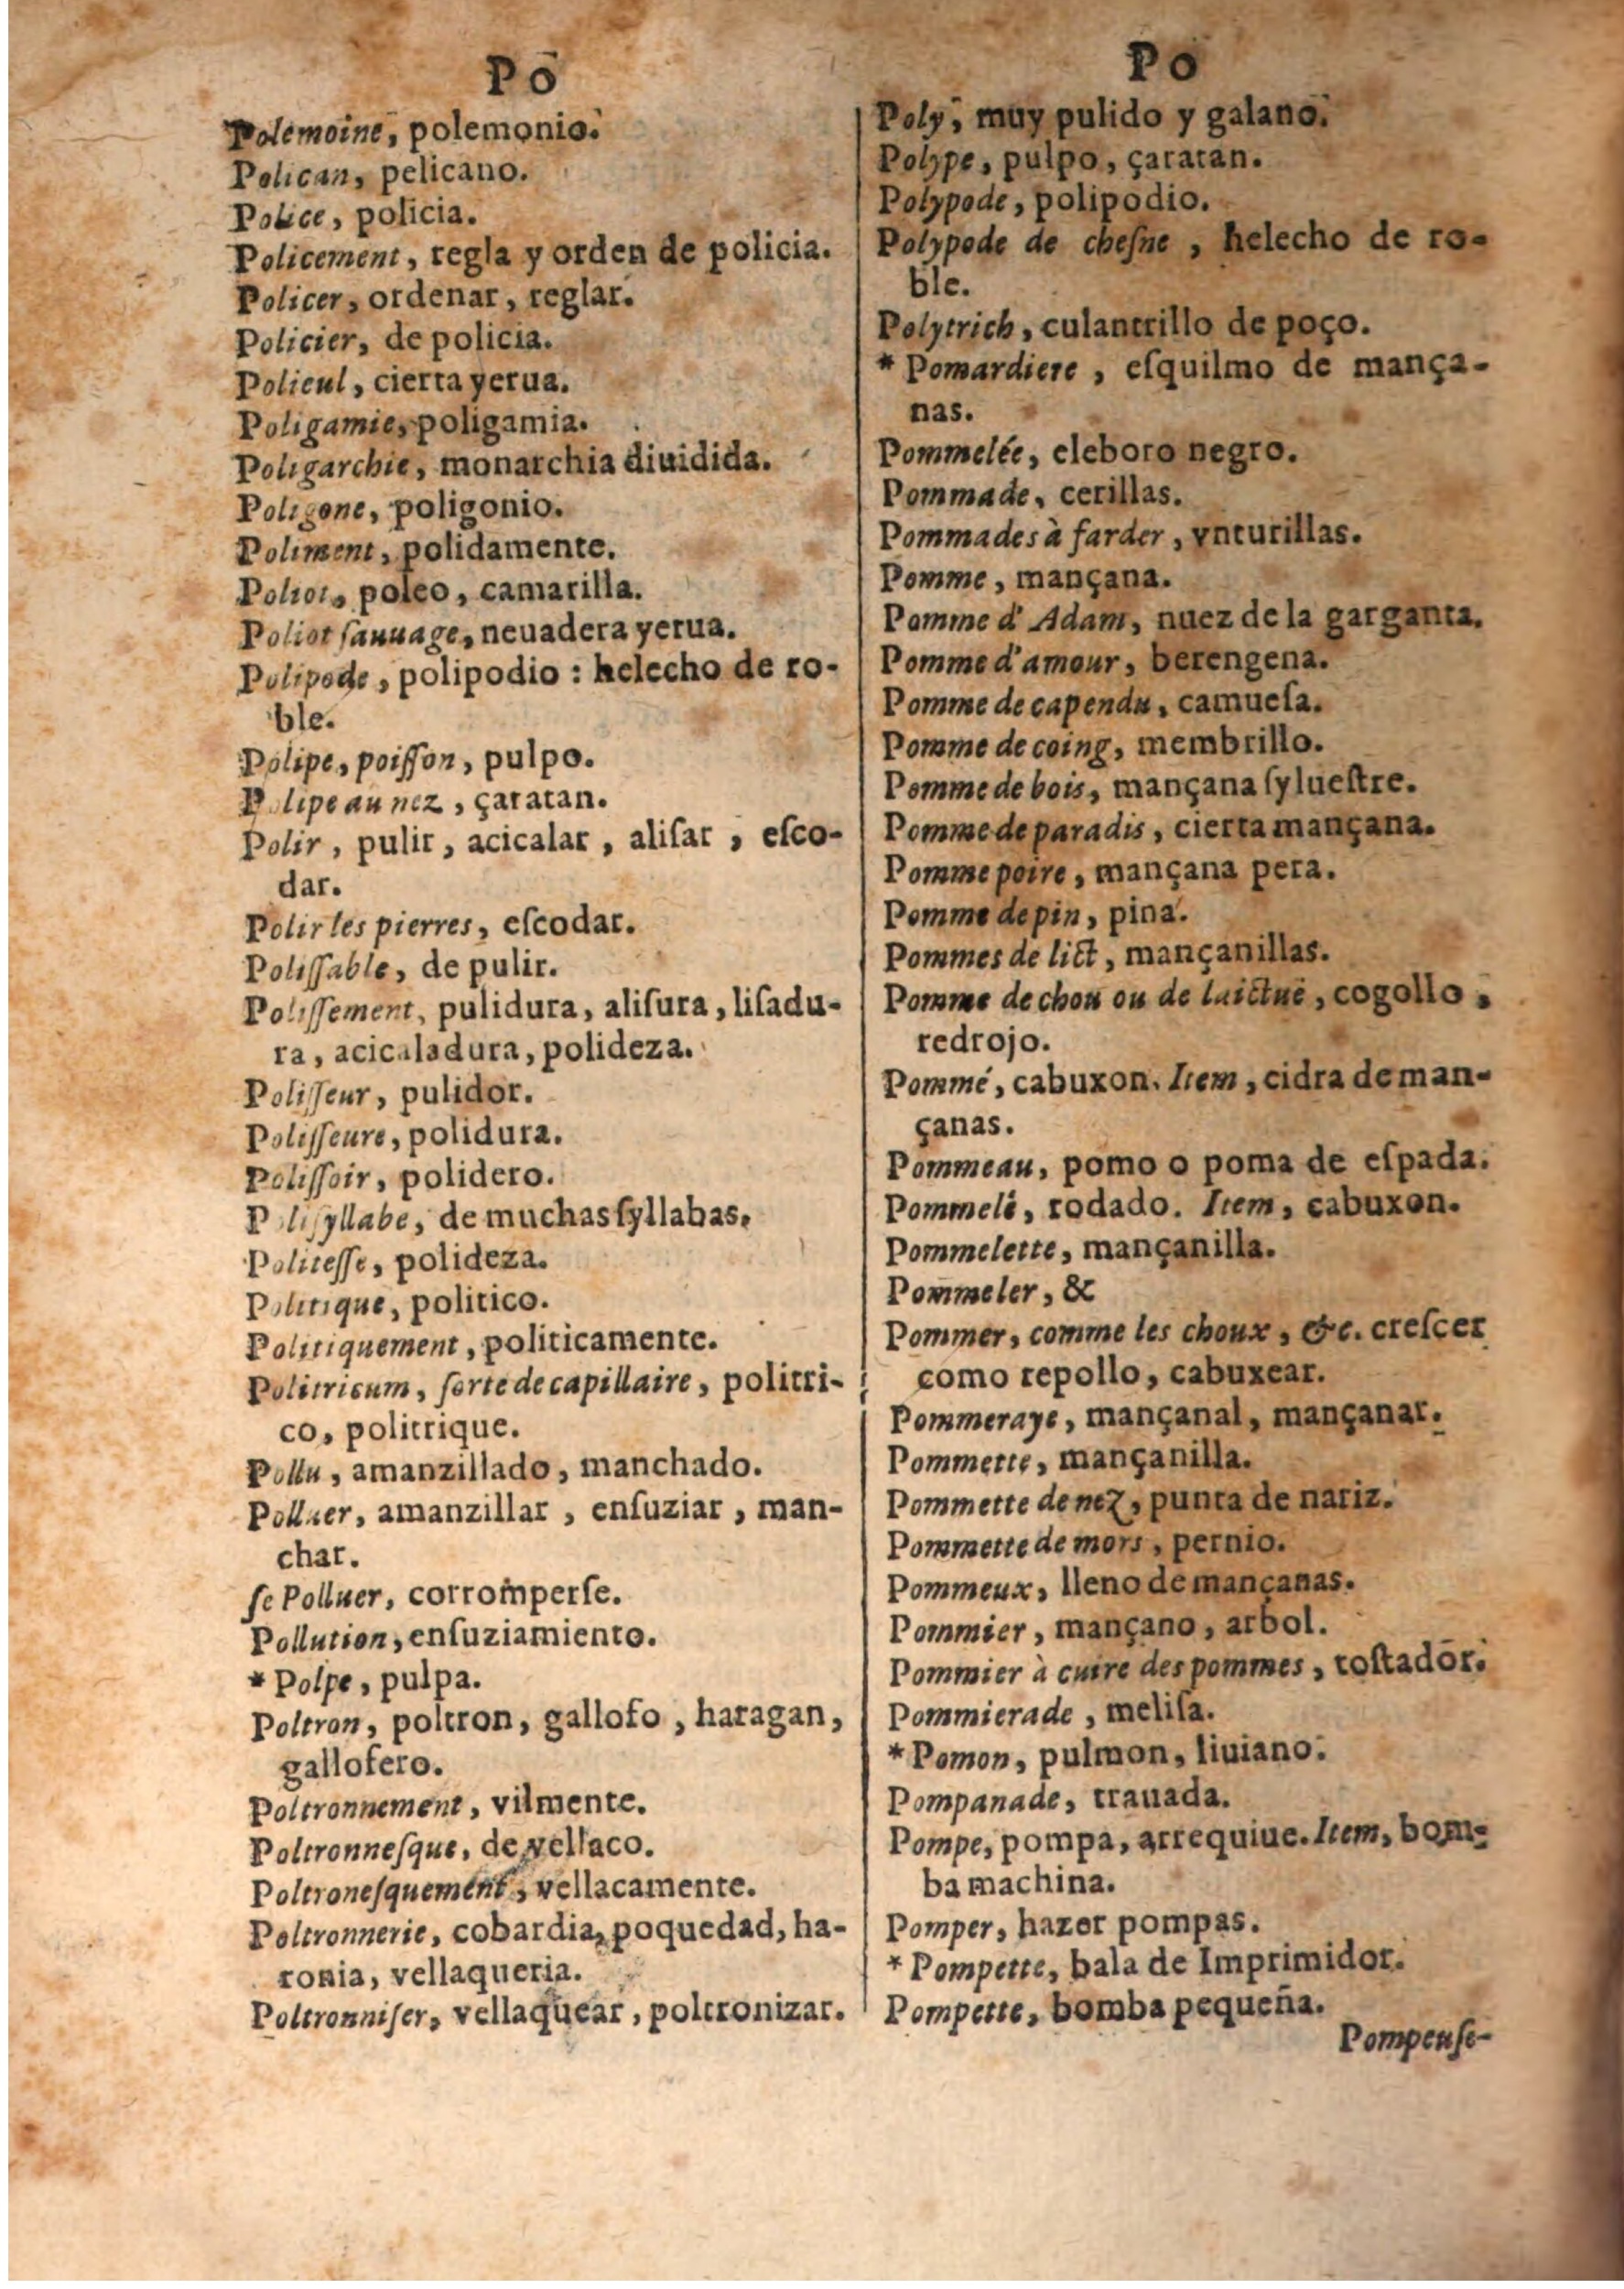 PO
Polemoine, polemonio.
Polican, pelicano.
Police, policia.
Policement, regla y orden de policia.
Policer, ordenar, reglar.
Policier, de policia.
Policul, cierta yerua.
Poligamie, poligamia.
Poligarchie, monarchia diuidida.
Poligone, poligonio.
Poliment, polidamente.
Poliot, poleo, camarilla.
Poliot ſauuage, neuadera yerua.
Polipode, polipodio : helecho de ro-
ble.
Polipe, poiſſon, pulpo.
Polipe au nez, çaratan.
Polir, pulir, acicalar, aliſar, eſco-
dar.
Polir les pierres, eſcodar.
Poliſſable, de pulir.
Poliſſement, pulidura, aliſura, liſadu-
ra, acicaladura, polideza.
Poliſſeur, pulidor.
Poliſſeure, polidura.
Poliſſoir, polidero.
Poliſyllabe, de muchas ſyllabas.
Politeſſe, polideza.
Politique, politico.
Politiquement, politicamente.
Politricum, ſorte de capillaire, politri-
co, politrique.
Pollu, amanzillado, manchado.
Polluer, amanzillar, enſuziar, man-
char.
ſe Polluer, corromperſe.
Pollution, enſuziamiento.
* Polpe, pulpa.
Poltron, poltron, gallofo, haragan,
gallofero.
Poltronnement, vilmente.
Poltronneſque, de vellaco.
Poltroneſquement, vellacamente.
Poltronnerie, cobardia, poquedad, ha-
ronia, vellaqueria.
Poltronniſer, vellaquear, poltronizar.
PO
Poly, muy pulido y galano.
Polype, pulpo, çaratan.
Polypode, polipodio.
Polypode de cheſne, helecho de ro-
ble.
Polytrich, culantrillo de poço.
* Pomardiere, eſquilmo de mança-
nas.
Pommelée, eleboro negro.
Pommade, cerillas.
Pommades à farder, vnturillas.
Pomme, mançana.
Pomme d'Adam, nuez de la garganta.
Pomme d'amour, berengena.
Pomme de capendu, camueſa.
Pomme de coing, membrillo.
Pomme de bois, mançana ſylueſtre.
Pomme de paradis, cierta mançana.
Pomme poire, mançana pera.
Pomme de pin, pina.
Pommes de lict, mançanillas.
Pomme de chou ou de laictuë, cogollo,
redrojo.
Pommé, cabuxon. Item, cidra de man-
çanas.
Pommeau, pomo o poma de eſpada.
Pommelé, rodado. Item, cabuxon.
Pommelette, mançanilla.
Pommeler, &
Pommer, comme les choux, &c. creſcer
como repollo, cabuxear.
Pommeraye, mançanal, mançanar.
Pommette, mançanilla.
Pommette de nez, punta de nariz.
Pommette de mors, pernio.
Pommeux, lleno de mançanas.
Pommier, mançano, arbol.
Pommier à cuire des pommes, toſtador.
Pommierade, meliſa.
* Pomon, pulmon, liuiano.
Pompanade, trauada.
Pompe, pompa, arrequiue. Item, bom-
ba machina.
Pomper, hazer pompas.
* Pompette, bala de Imprimidor.
Pompette, bomba pequeña.
Pompeuſe-